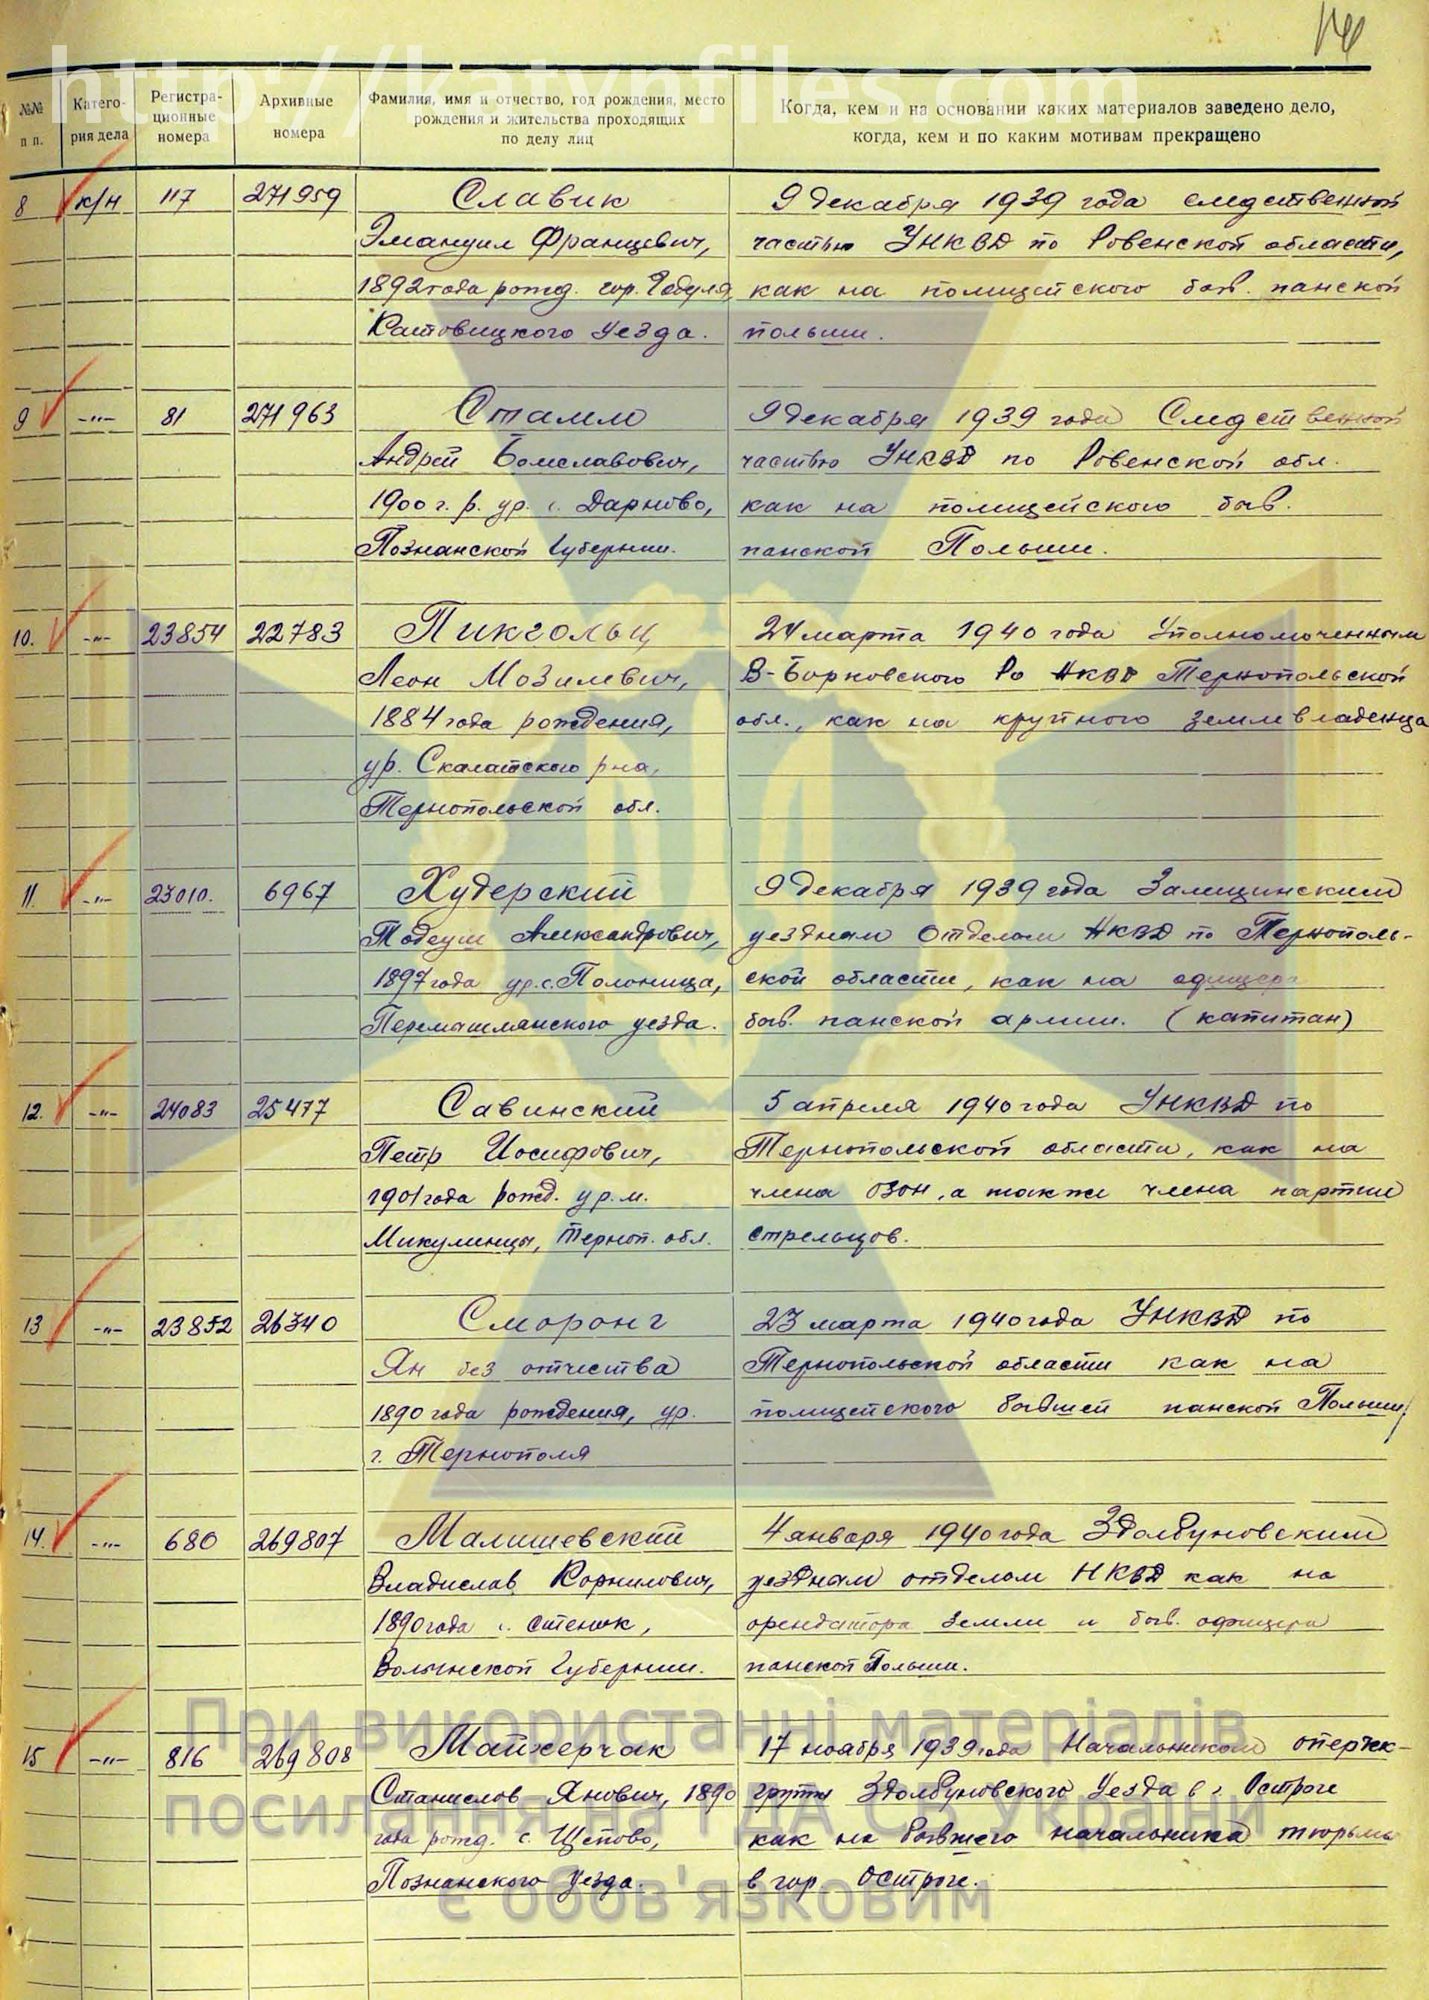 http://katynfiles.com
№№ п п.
Катего-
рия дела
Регистра-
ционные
номера
Архивные
номера
Фамилия, имя и отчество, год рождения, место
рождения и жительства проходящих
по делу лиц
Когда, кем и на основании каких материалов заведено дело,
когда, кем и по каким мотивам прекращено
8 к/н 117 271959 Славик 9 декабря 1939 года следственной
Эмануил Францевич, частью УНКВД по Ровенской области,
1892 года рожд. гор. Годуля, как на полицейского быв. панской
Катовицкого уезда. польши.
9 -"- 81 271963 Стамло 9 декабря 1939 года Следственной
Андрей Болеславович, частью УНКВД по Ровенской обл.
1900 г. р. ур. с. Дарново, как на полицейского быв.
Познанской Губернии. панской Польши.
10. -"- 23854 22783 Пикгольц 24 марта 1940 года Уполномоченным
Леон Мозилевич, В-Борковского Ро НКВД Тернопольской
1884 года рождения, обл., как на крупного землевладельца
ур. Скалатского р-на,
Тернопольской обл.
11. -"- 23010. 6967 Худерский 9 декабря 1939 года Залищинским
Тадеуш Александрович, уездным Отделом НКВД по Тернополь-
1897 года ур. с. Полоница, ской области, как на офицера
Перемашлянского уезда. быв. панской армии. (капитан)
12. -"- 24083 25477 Савинский 5 апреля 1940 года УНКВД по
Петр Иосифович, Тернопольской области, как на
1901 года рожд. ур. м. члена ОЗОН, а также члена партии
Микулинцы, Терноп. обл. стрельцов.
13 -"- 23852 26340 Сморонг 23 марта 1940 года УНКВД по
Ян без отчества Тернопольской области как на
1890 года рождения, ур. полицейского бывшей панской Польши
г. Тернополя
14. -"- 680 269807 Малишевский 4 января 1940 года Здолбуновским
Владислав Корнилович, уездным отделом НКВД как на
1890 года с. Стенок, орендатора земли и быв. офицера
Волынской Губернии. панской Польши.
15 -"- 816 269808 Майхерчак 17 ноября 1939 года Начальником оперчек-
Станислов Янович, 1890 группы Здолбуновского Уезда в г. Остроге
года рожд. с. Цепово, как на бывшего начальника тюрьмы
Познанского уезда. в гор. Остроге.
При використанні матеріалів
посилання на ГДА СБ України
є обов'язковим